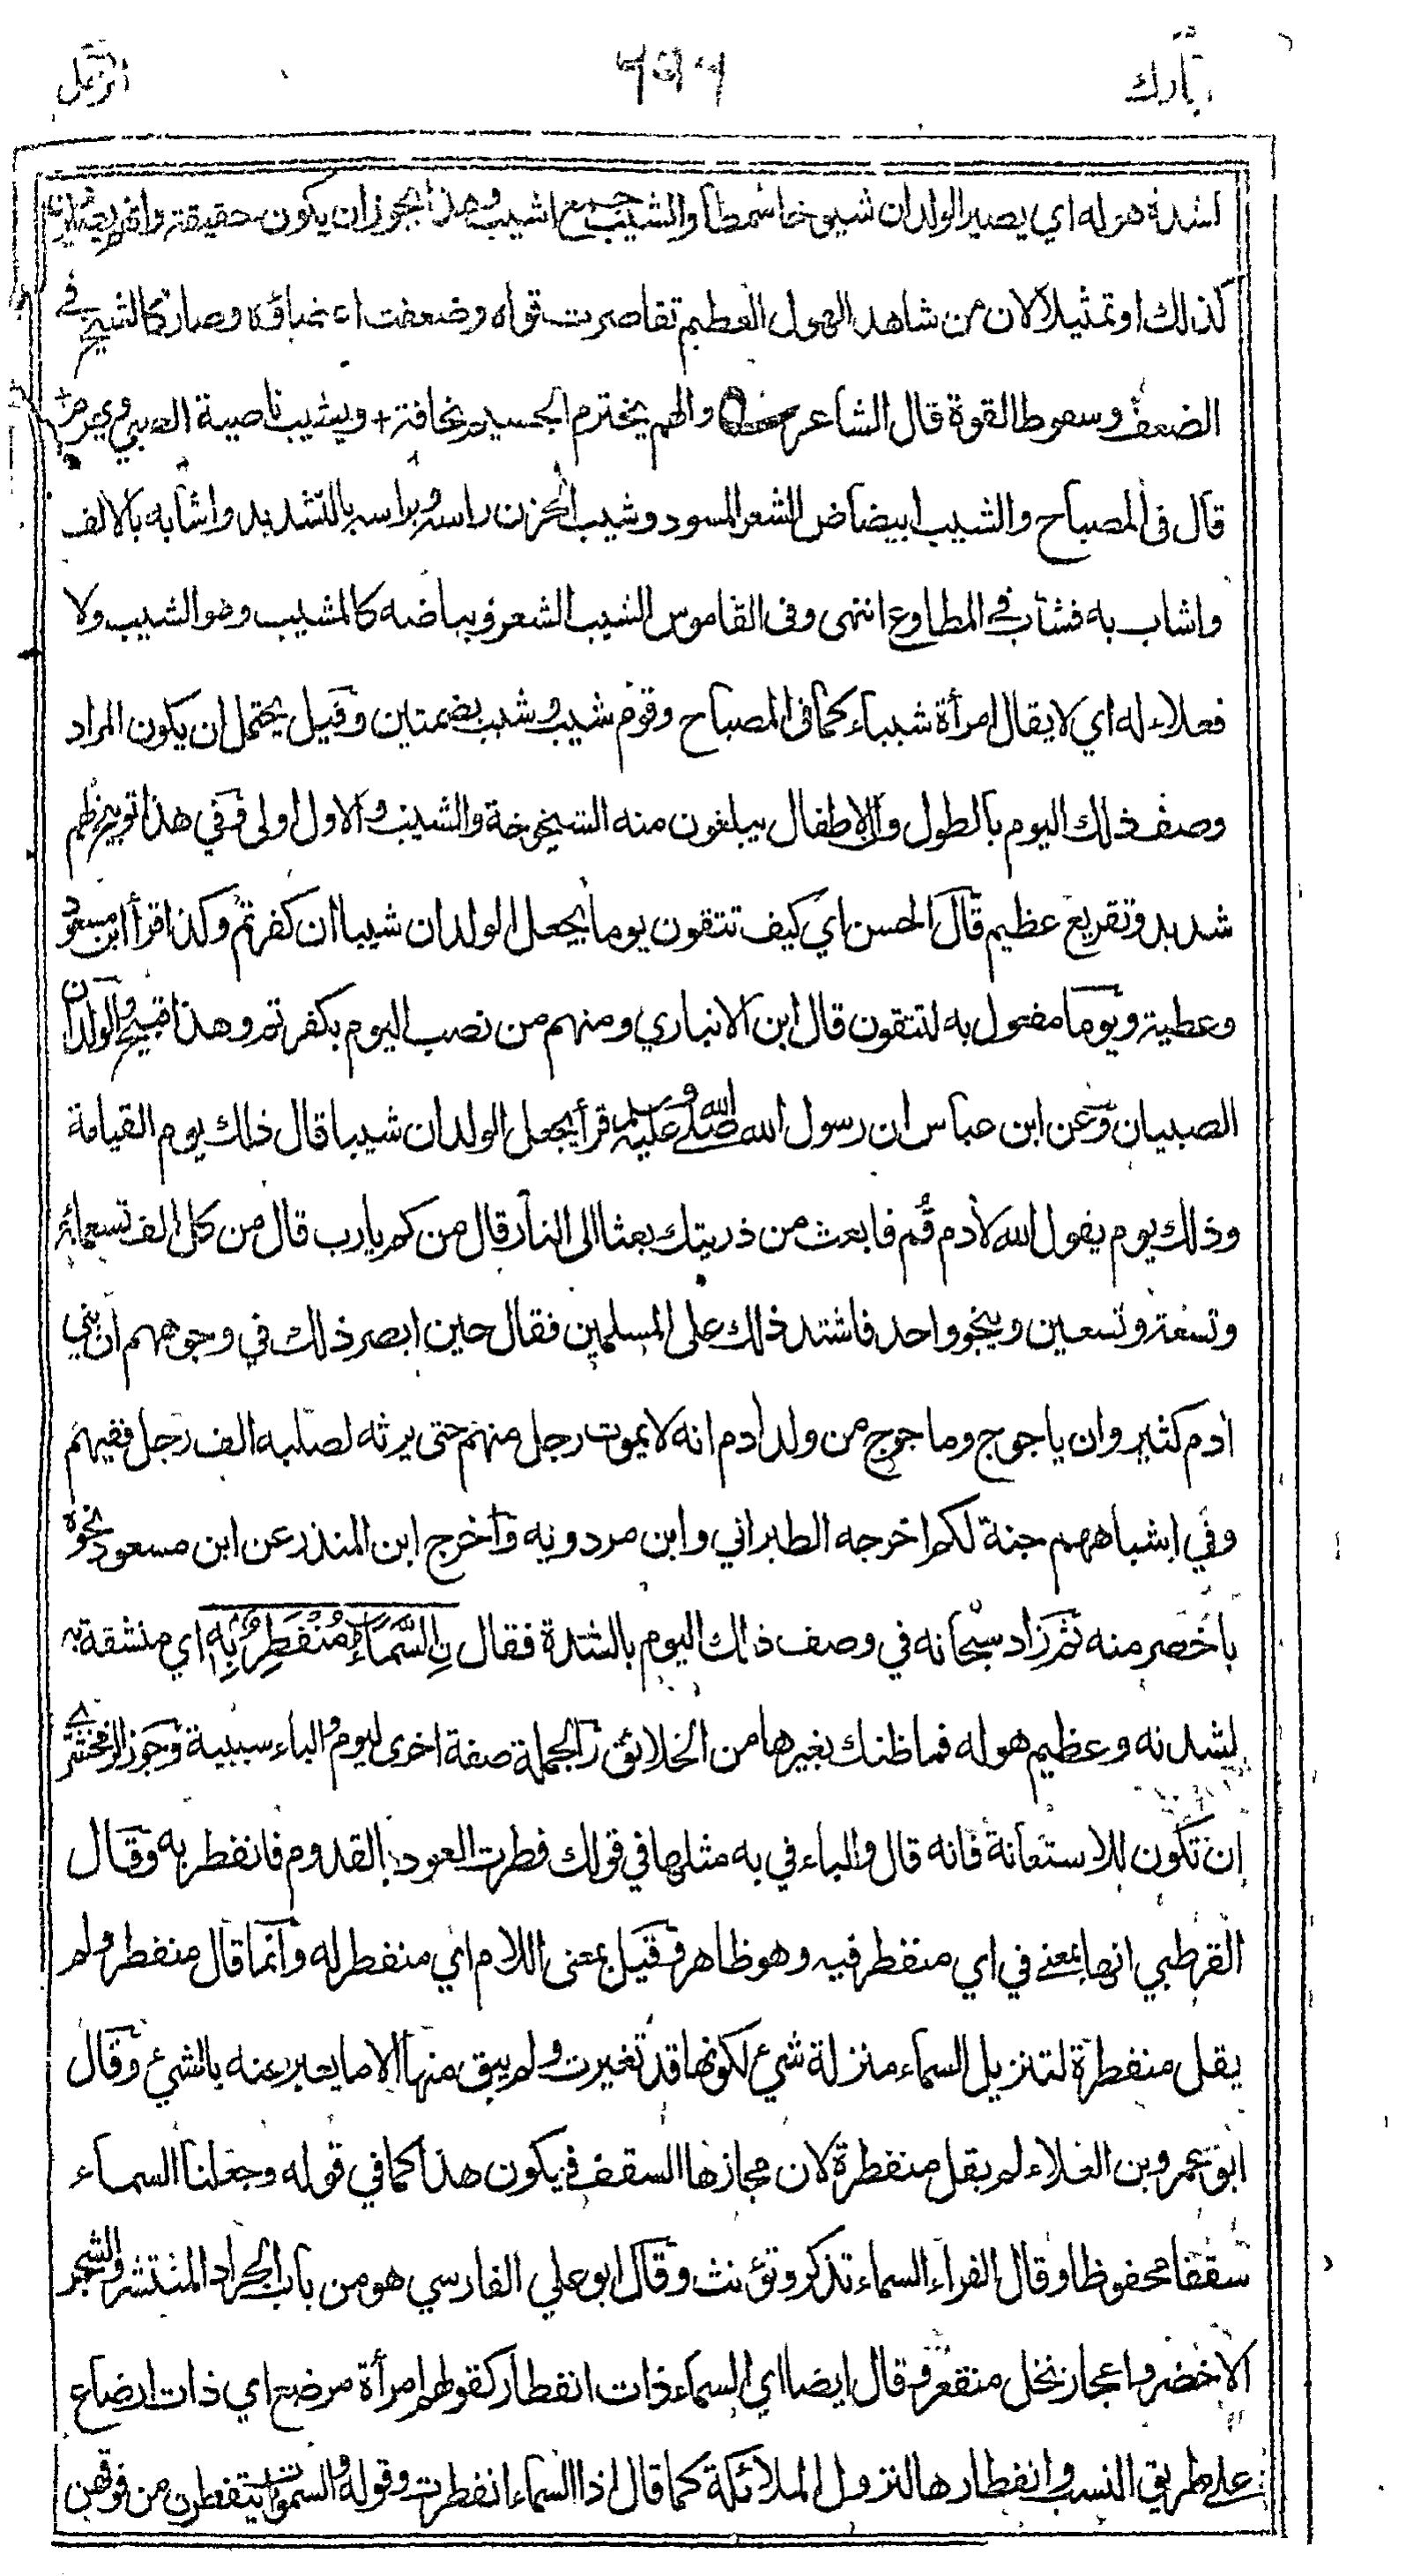 تبارك
المزمل
لشدة هوله اي يصير الولدان شيوخا شمطا والشيب جمع اشيب وهذا يجوز ان يكون حقيقة وانهم يصيرون
كذلك او تمثيلا لان من شاهد الهول العظيم تقاصرت قواه وضعفت اعضاؤه وصار كالشيخ في
الضعف وسقوط القوة قال الشاعر والهم يخترم الجسيم نحافة + ويشيب ناصية الصبي ويهرم +
قال في المصباح والشيب ابيضاض الشعر المسود وشيب الحزن راسه وبراسه بالتشديد واشابه بالالف
واشاب به فشاب في المطاوع انتهى وفي القاموس الشيب الشعر وبياضه كالمشيب وهو الشيب ولا
فعلاء له اي لا يقال امرأة شيباء كما في المصباح وقوم شيب وشيب بضمتين وقيل يحتمل ان يكون المراد
وصف ذلك اليوم بالطول وان الاطفال يبلغون منه الشيخوخة والشيب والاول اولى وفي هذا توبيخ لهم
شديد وتقريع عظيم قال الحسن اي كيف تتقون يوما يجعل الولدان شيبا ان كفرتم وكذا قرأ ابن مسعود
وعطية ويوما مفعول به لتتقون قال ابن الانباري ومنهم من نصب اليوم بكفرتم وهذا قبيح والولدان
الصبيان وعن ابن عباس ان رسول الله صلى الله عليه وسلم قرأ يجعل الولدان شيبا قال ذلك يوم القيامة
وذلك يوم يقول الله لأدم قم فابعث من ذريتك بعثا الى النار قال من كم يارب قال من كل الف تسعمائة
وتسعة وتسعين وينجو واحد فاشتد ذلك على المسلمين فقال حين ابصر ذلك في وجوههم ان بني
ادم كثير وان ياجوج وماجوج من ولد أدم انه لا يموت رجل منهم حتى يرثه لصلبه الف رجل ففيهم
وفي اشباههم جنة لكم اخرجه الطبراني وابن مردويه واخرج ابن المنذر عن ابن مسعود نحوه
باخصر منه ثم زاد سبحانه في وصف ذلك اليوم بالشدة فقال نِ السَّمَاءُ مُنْفَطِرٌ بِهٖ اي منشقة به
لشدته وعظيم هوله فما ظنك بغيرها من الخلائق والجملة صفة اخرى ليوم والباء سببية وجوز الزمخشري
ان تكون للاستعانة فانه قال والباء في به مثلها في قولك فطرت العود بالقدوم فانفطر به وقال
القرطبي انها بمعنى في اي منفطر فيه وهو ظاهر وقيل بمعنى اللام اي منفطر له وانما قال منفطر ولم
يقل منفطرة لتنزيل السماء منزلة شيء لكونها قد تغيرت ولم يبق منها الا ما يعبر عنه بالشيء وقال
ابو عمرو بن العلاء لم يقل منفطرة لان مجازها السقف فيكون هذا كما في قوله وجعلنا السماء
سقفا محفوظا وقال الفراء السماء تذكر وتؤنث وقال ابو علي الفارسي هو من باب الجراد المنتشر والشجر
الاخضر واعجاز نخل منقعر وقال ايضا اي السماء ذات انفطار كقولهم امرأة مرضع اي ذات ارضاع
على طريق النسب وانفطارها لنزول الملائكة كما قال اذا السماء انفطرت وقوله والسموات يتفطرن من فوقهن